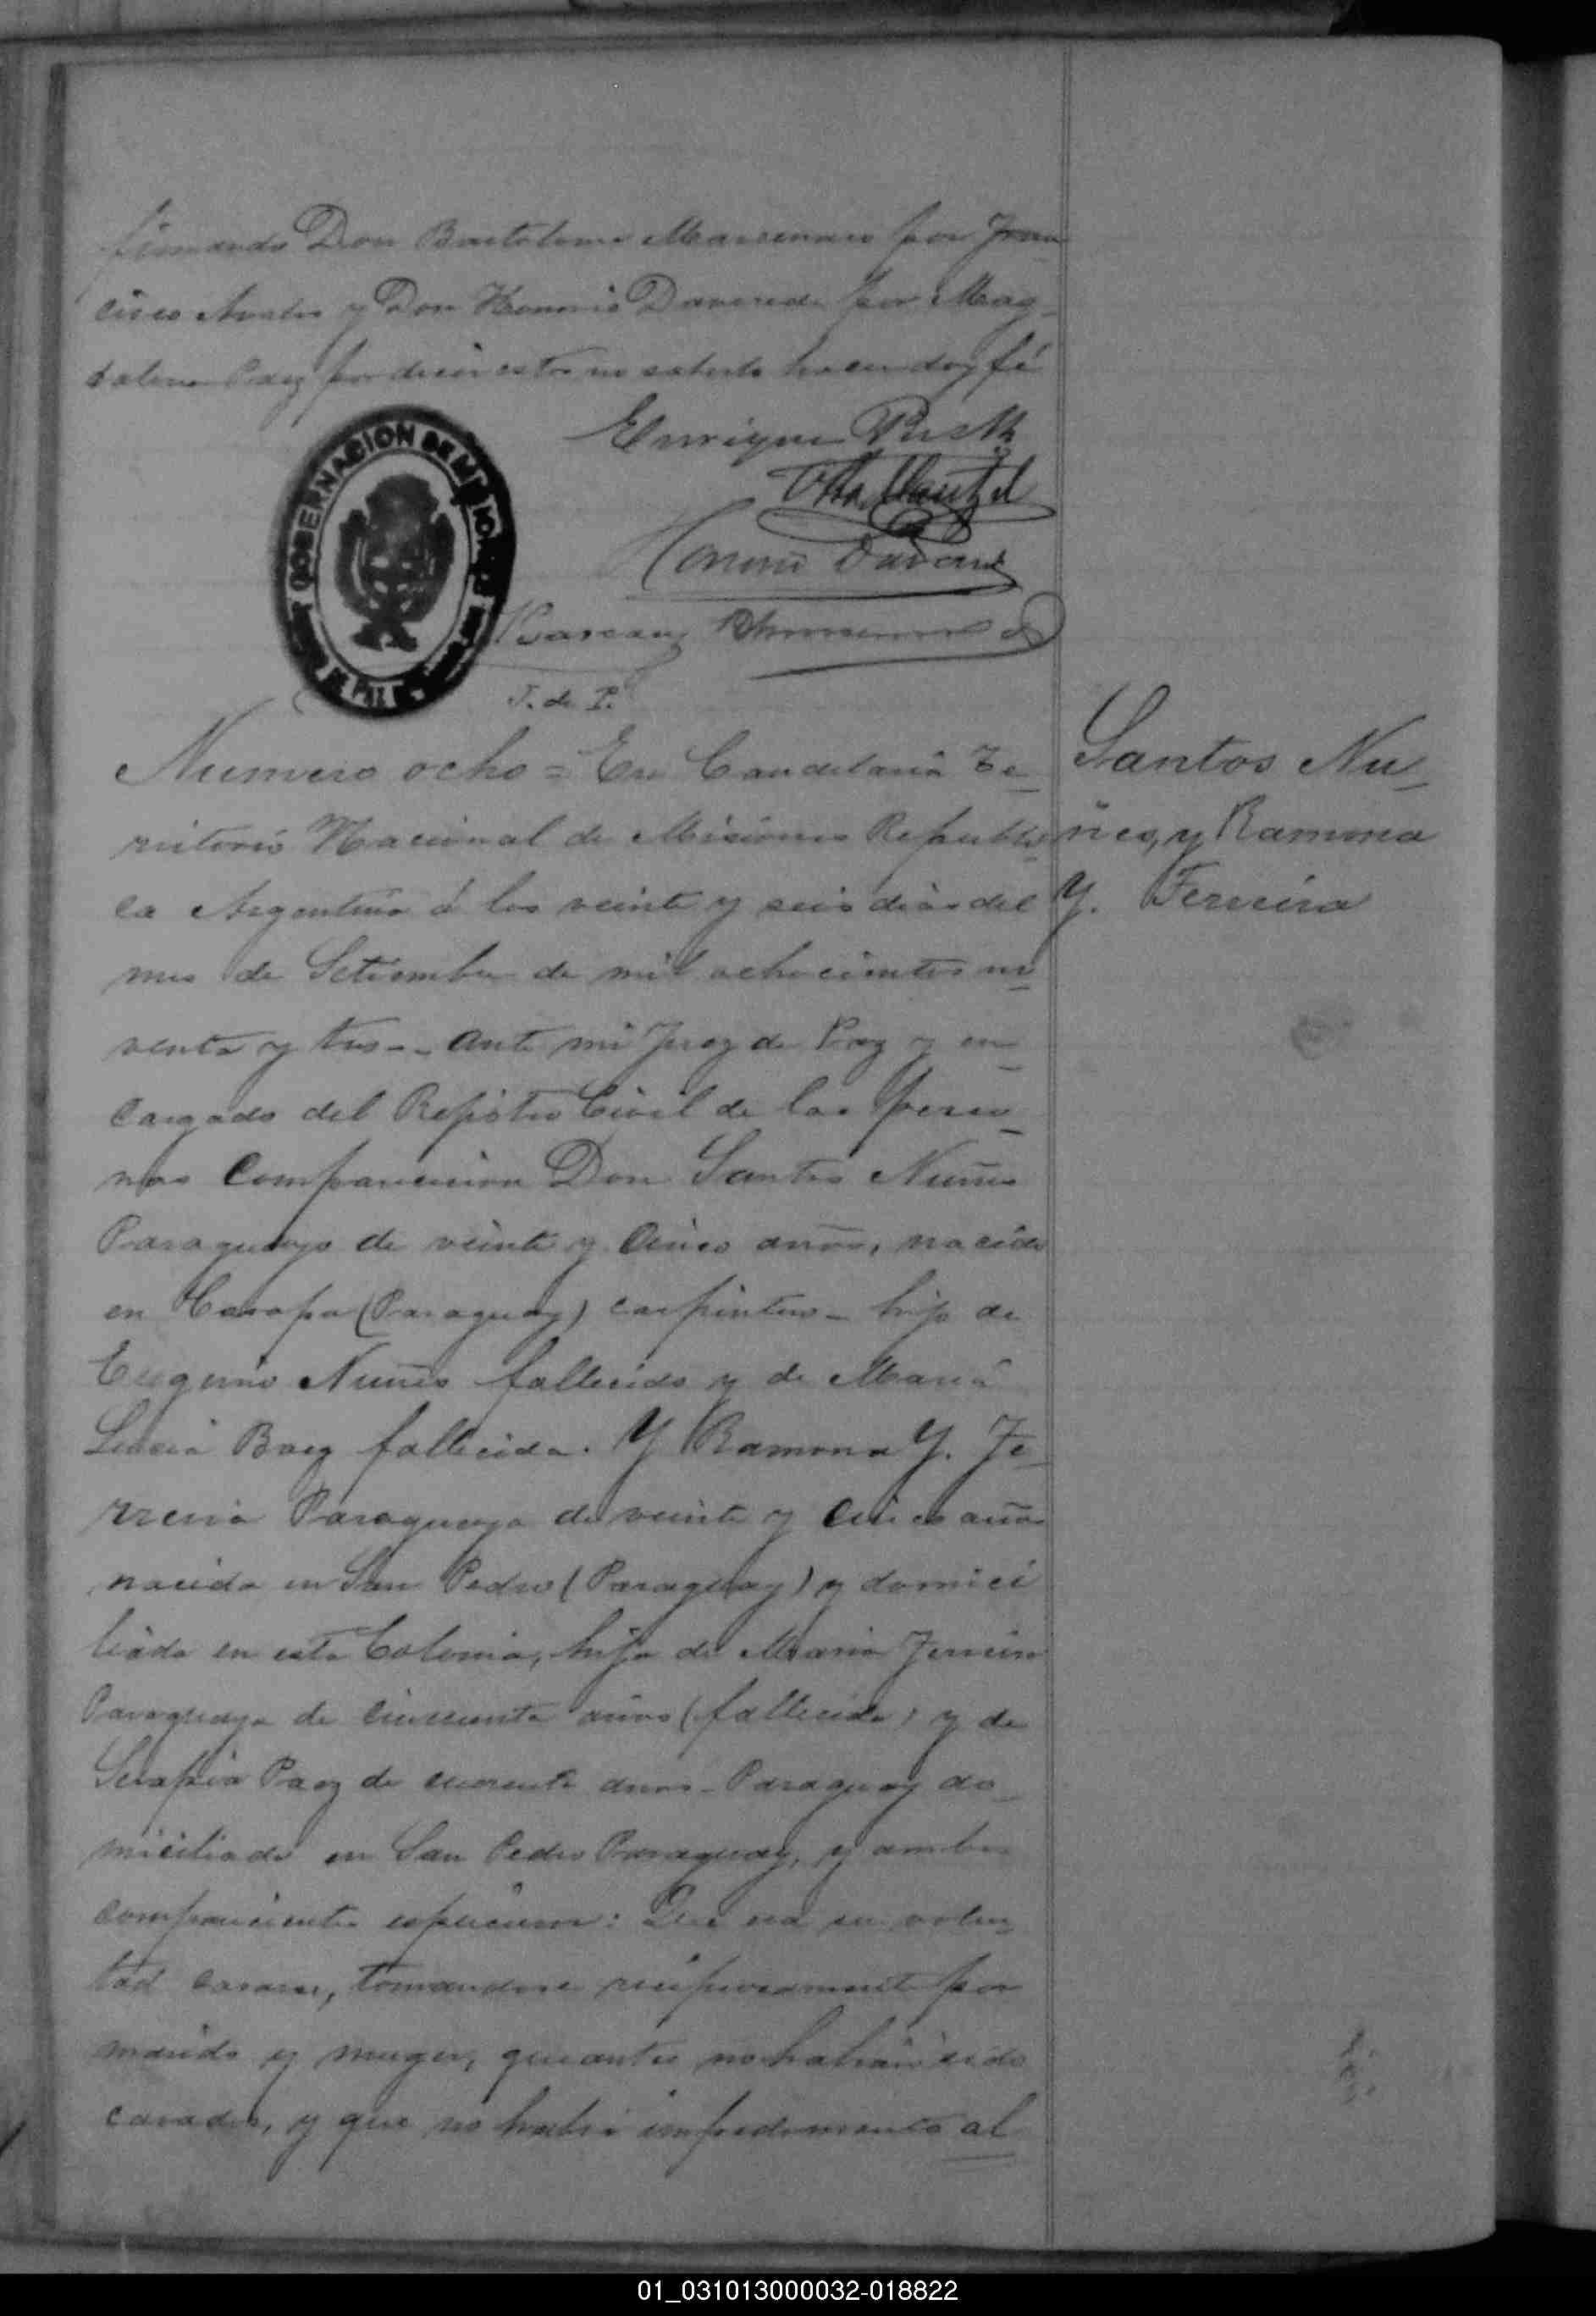 firmando Don Bartolome Marcenaro por Fran
cisco Avalos y Don Honorio Davered por Mag-
dalena Paez por decir estos no saberlo hacer doy fé
Enrique
Otto
Honorio
J. de P.
GOBERNACION DE MISIONES
Numero ocho = En Candelaria Te-
rritorio Nacional de Misiones Republi-
ca Argentina á los veinte y seis dias del
mes de Setiembre de mil ochocientos no-
venta y tres -- ante mi Juez de Paz y en-
cargado del Rejistro Civil de las perso-
nas Comparecieron Don Santos Nuñes
Paraguayo de veinte y cinco años, nacido
en Casapa (Paraguay) carpintero - hijo de
Eugenio Nuñes fallecido y de Maria
Lucia Baez fallecida. Y Ramona Y. Fe-
rreira Paraguaya de veinte y cinco años
nacida en San Pedro (Paraguay) y domici
liada en esta Colonia, hija de Maria Ferreira
Paraguaya de cincuenta años (fallecida) y de
Serapia Paez de cuarenta años - Paraguay do-
miciliada en San Pedro Paraguay, y ambos
comparecientes espusieron: Que era su volun-
tad casarse, tomandose reciprocamente por
marido y muger, que antes no habian sido
casados, y que no habia impedimento al
Santos Nu-
ñes, y Ramona
Y. Ferreira
01_031013000032-018822